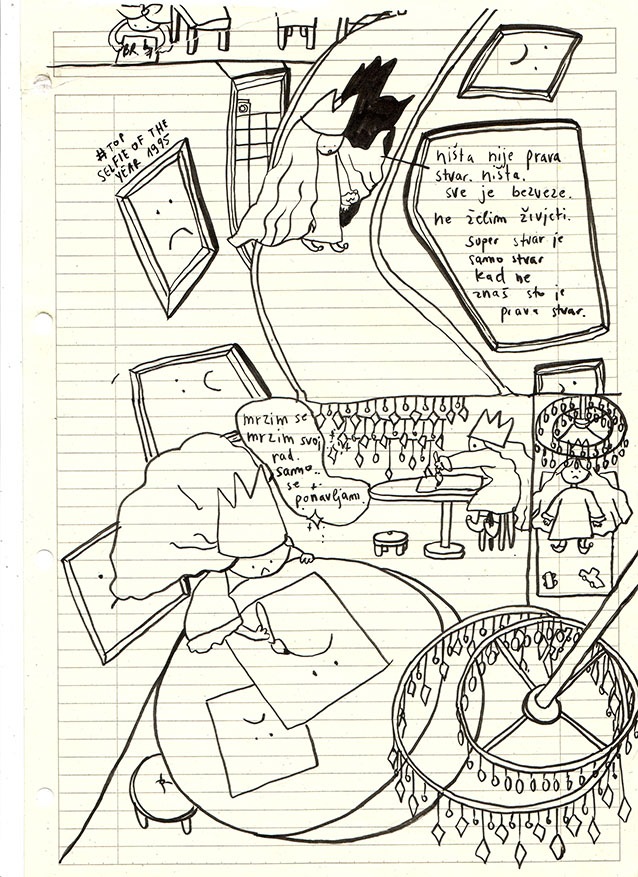 BR. 1
#TOP
SELFIE OF THE
YEAR 1995
ništa nije prava
stvar. ništa.
sve je bezveze.
ne želim živjeti.
super stvar je
samo stvar
kad ne
znaš sto je
prava stvar.
mrzim se
mrzim svoj
rad.
samo..
se
ponavljam